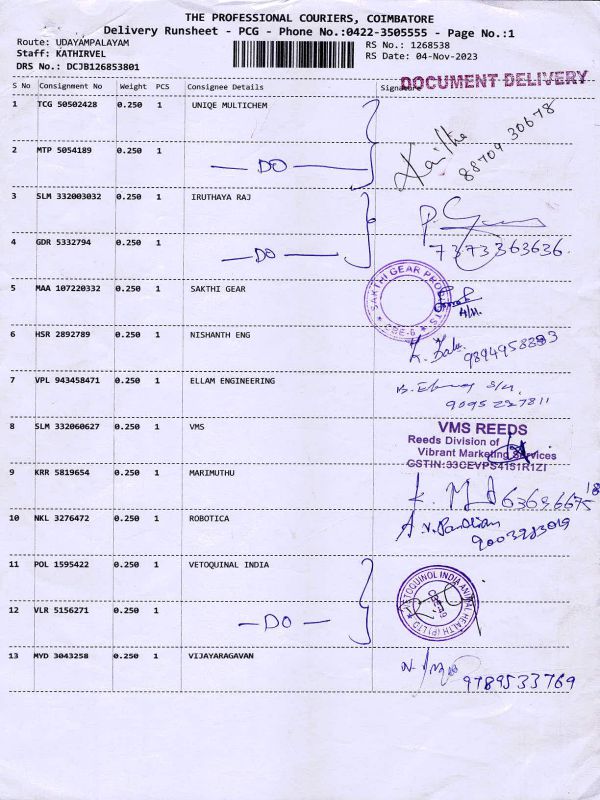 THE PROFESSIONAL COURIERS, COIMBATORE
Delivery Runsheet - PCG - Phone No.:0422-3505555 - Page No.:1
Route: UDAYAMPALAYAM RS No.: 1268538
Staff: KATHIRVEL RS Date: 04-Nov-2023
DRS No.: DCJB126853801
DOCUMENT DELIVERY
S No Consignment No Weight PCS Consignee Details Signature
1 TCG 50502428 0.250 1 UNIQE MULTICHEM
88709 30678
2 MTP 5054189 0.250 1
DO
3 SLM 332003032 0.250 1 IRUTHAYA RAJ
4 GDR 5332794 0.250 1
DO 7373363636
5 MAA 107220332 0.250 1 SAKTHI GEAR
SAKTHI GEAR PRODUCTS CBE-6
6 HSR 2892789 0.250 1 NISHANTH ENG
7 VPL 943458471 0.250 1 ELLAM ENGINEERING
9095 227811
8 SLM 332060627 0.250 1 VMS
VMS REEDS
Reeds Division of
Vibrant Marketing Services
GSTIN:33CEVPS4151R1ZI
9 KRR 5819654 0.250 1 MARIMUTHU
10 NKL 3276472 0.250 1 ROBOTICA
A.V. Pandian
9003983019
11 POL 1595422 0.250 1 VETOQUINAL INDIA
VETOQUINOL INDIA ANIMAL HEALTH (P) LTD
12 VLR 5156271 0.250 1
DO
13 MYD 3043258 0.250 1 VIJAYARAGAVAN
9789533769